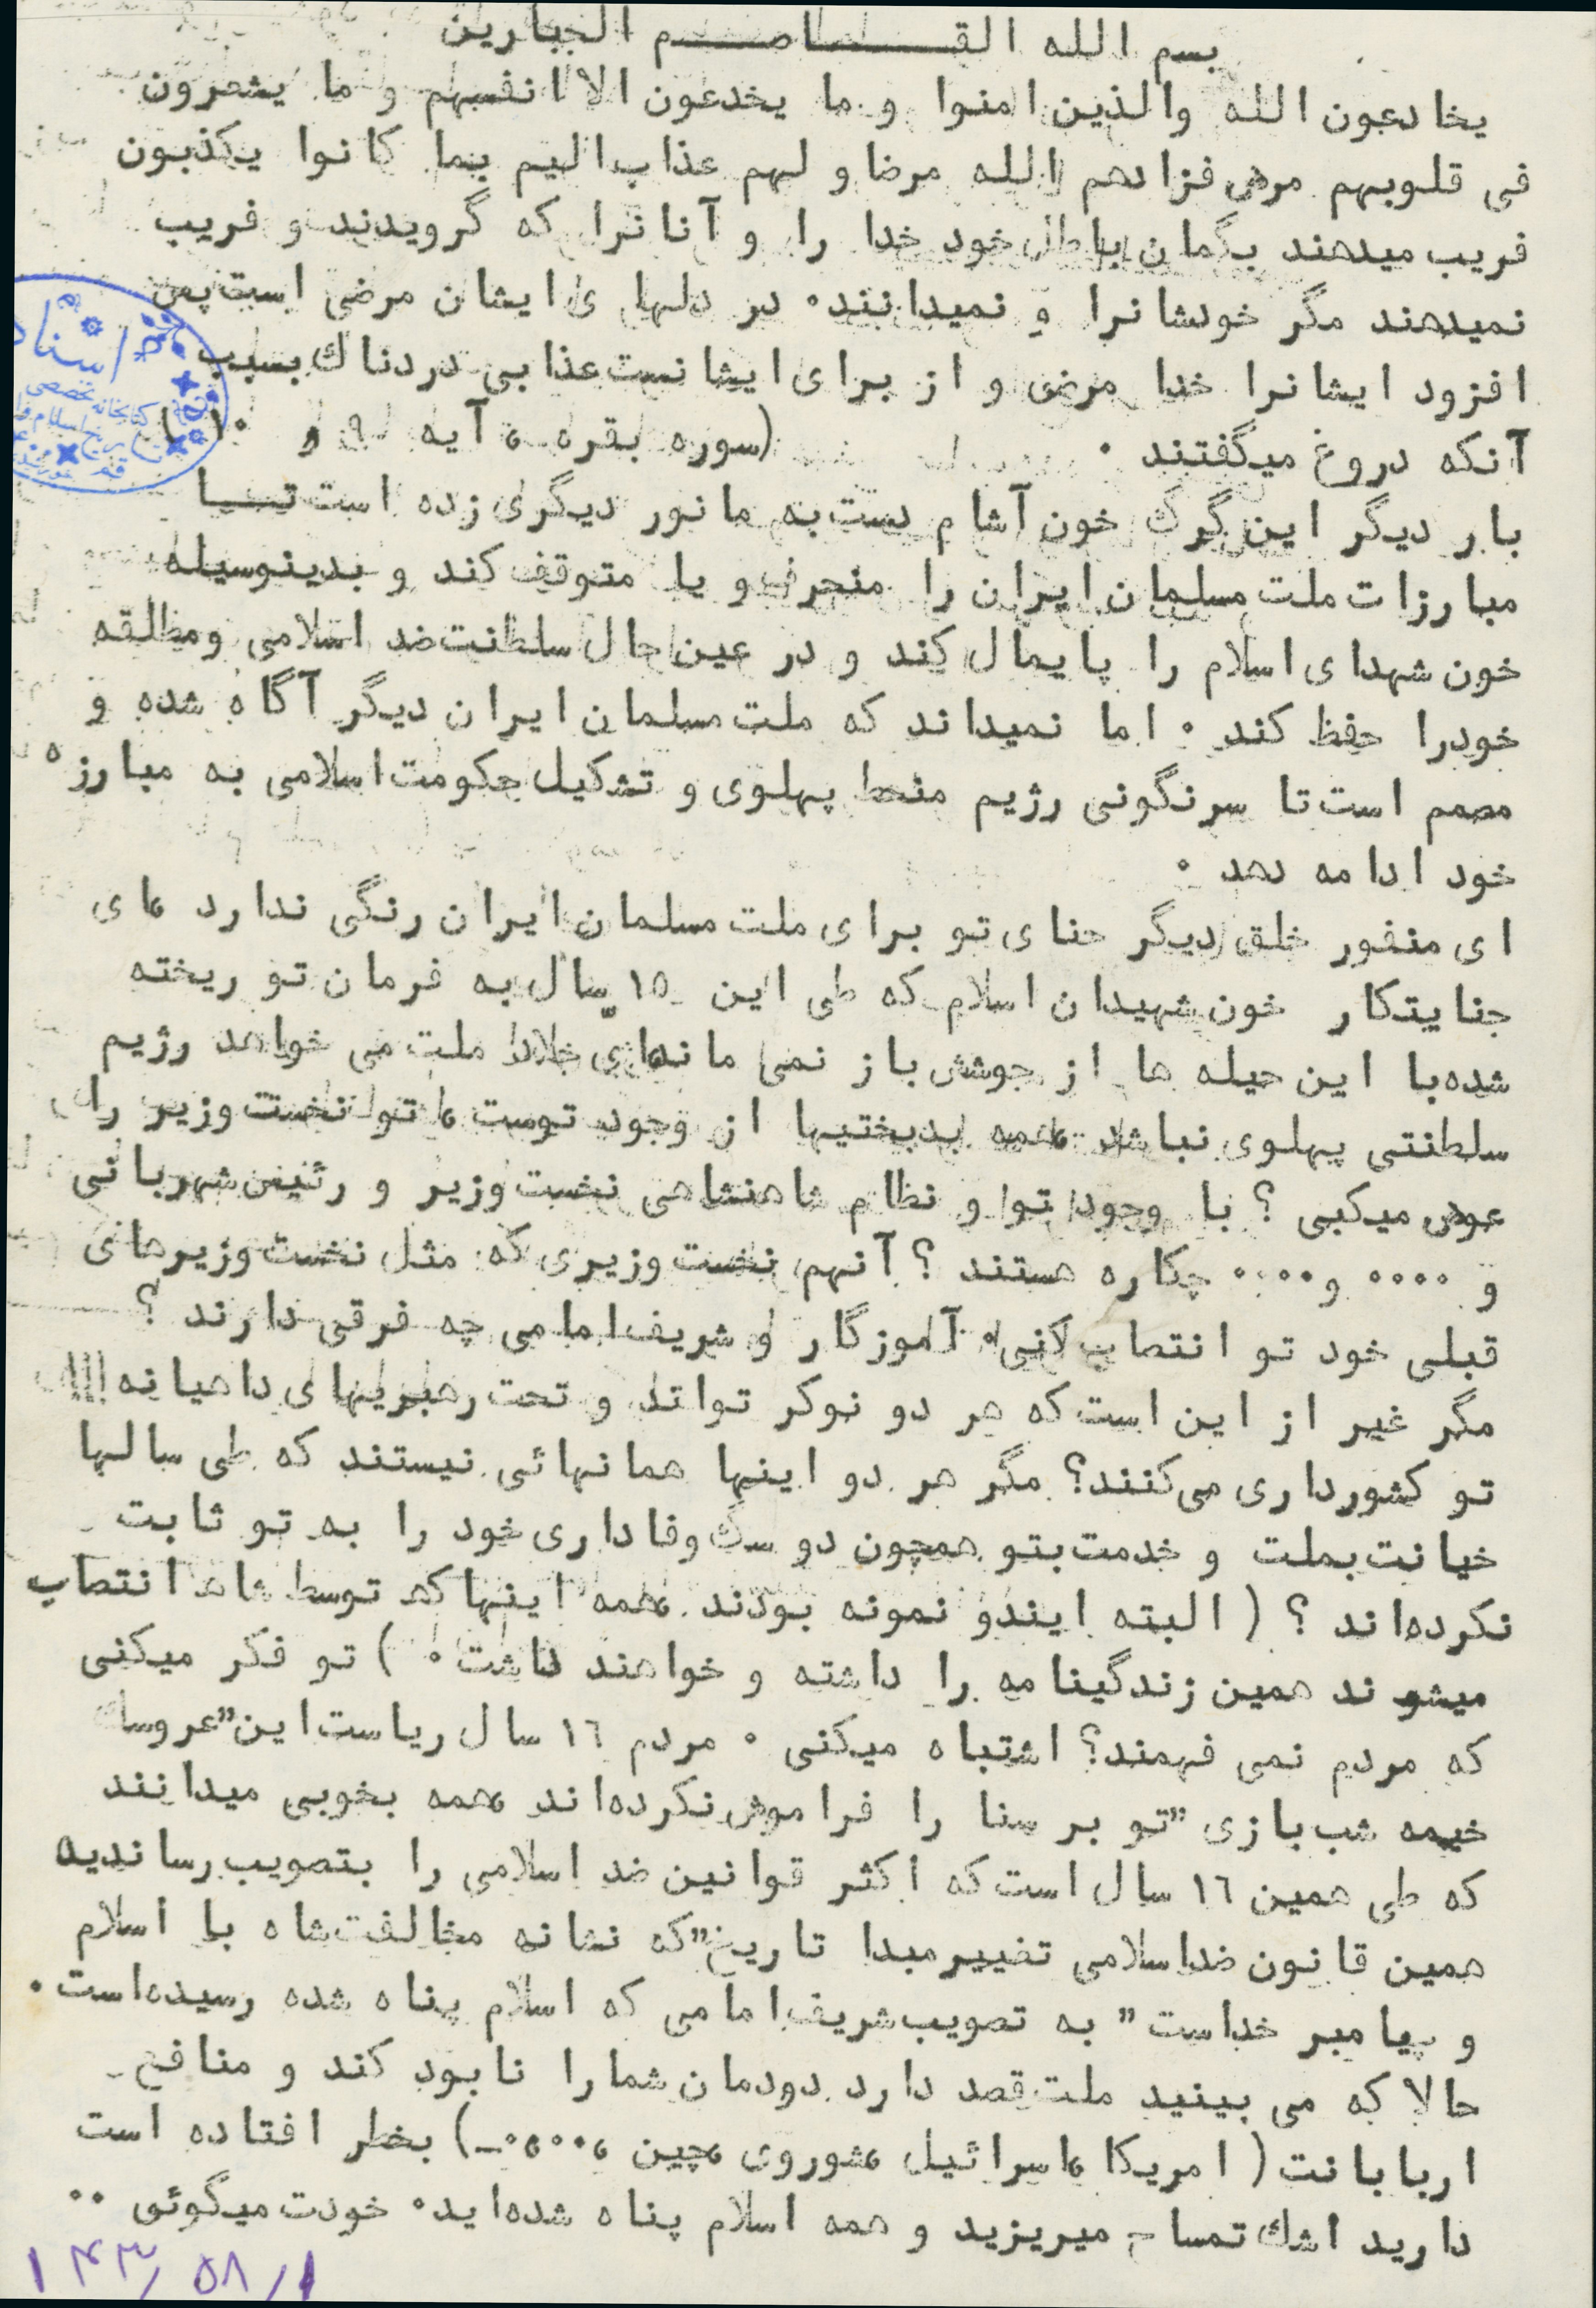 بسم الله القـــــاصــــم الجبارین
یخادعون الله والذین امنوا و ما یخدعون الا انفسهم و ما یشعرون
فی قلوبهم مرض فزادهم الله مرضا و لهم عذاب الیم بما کانوا یکذبون
فریب میدهند بگمان باطل خود خدا را و آنانرا که گرویدند و فریب
نمیدهند مگر خودشانرا و نمیدانند۰ در دلهای ایشان مرضی است پس
افزود ایشانرا خدا مرضی و از برای ایشانست عذابی دردناك بسبب
آنکه دروغ میگفتند ۰ (سوره بقره ، آیه ۹ و ۱۰)
بار دیگر این گرگ خون آشام دست به مانور دیگری زده است تــا
مبارزات ملت مسلمان ایران را منحرف و یا متوقف کند و بدینوسیله
خون شهدای اسلام را پایمال کند و در عین حال سلطنت ضد اسلامی ومطلقه
خودرا حفظ کند ۰ اما نمیداند که ملت مسلمان ایران دیگر آگاه شده و
مصمم است تا سرنگونی رژیم منحط پهلوی و تشکیل حکومت اسلامی به مبارزه
خود ادامه دهد ۰
ای منفور خلق دیگر حنای تو برای ملت مسلمان ایران رنگی ندارد ،ای
جنایتکار خون شهیدان اسلام که طی این ۱۵ سال به فرمان تو ریخته
شده با این حیله ها از جوشش باز نمی ماند،ای جلاد ملت می خواهد رژیم
سلطنتی پهلوی نباشد ،همه بدبختیها از وجود توست ، تو نخست وزیر را
عوض میکبی ؟ با وجود تو و نظام شاهنشاهی نخست وزیر و رئیس شهربانی
و ۰۰۰۰ و۰۰۰۰ چکاره هستند ؟ آنهم نخست وزیری که مثل نخست وزیرهای
قبلی خود تو انتصاب کنی۰ آموزگار و شریف امامی چه فرقی دارند ؟
مگر غیر از این است که هر دو نوکر تواند و تحت رهبریهای داهیانه !!!
تو کشورداری می‌کنند؟ مگر هر دو اینها همانهائی نیستند که طی سالها
خیانت بملت و خدمت بتو همچون دو سگ وفاداری خود را به تو ثابت ـ
نکرده‌اند ؟ ( البته ایندو نمونه بودند ،همه اینها که توسط شاه انتصاب
میشوند همین زندگینامه را داشته و خواهند داشت۰ ) تو فکر میکنی
که مردم نمی فهمند؟ اشتباه میکنی ۰ مردم ۱٦ سال ریاست این "عروسك
خیمه شب بازی "تو بر سنا را فراموش نکرده‌اند ،همه بخوبی میدانند
که طی همین ۱٦ سال است که اکثر قوانین ضد اسلامی را بتصویب رساندید
همین قانون ضد اسلامی تغییر مبدا تاریخ"که نشانه مخالفت شاه با اسلام
و پیامبر خداست " به تصویب شریف امامی که اسلام پناه شده رسیده‌است۰
حالا که می بینید ملت قصد دارد دودمان شمارا نابود کند و منافع ـ
اربابانت ( امریکا ،اسرائیل ،شوروی ،چین ،۰۰۰۰ـ) بخطر افتاده است
دارید اشك تمساح میریزید و همه اسلام پناه شده‌اید۰ خودت میگوئی ۰۰
اسناد
کتابخانه تخصصی
۱۴۳/۵۸/۱